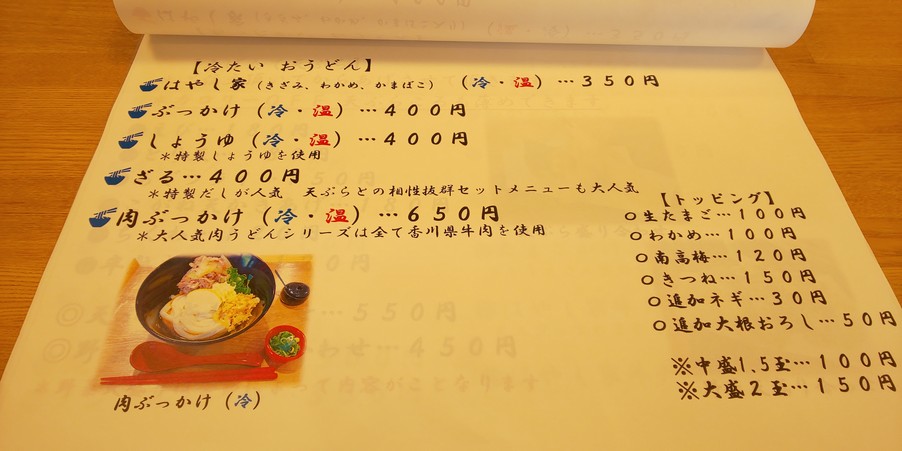 【冷たい おうどん】
はやし家(きざみ、わかめ、かまぼこ) (冷・温)…350円
ぶっかけ(冷・温)…400円
しょうゆ(冷・温)…400円
*特製しょうゆを使用
ざる…400円
*特製だしが人気 天ぷらとの相性抜群セットメニューも大人気
肉ぶっかけ(冷・温)…650円
*大人気肉うどんシリーズは全て香川県牛肉を使用
肉ぶっかけ(冷)
【トッピング】
○生たまご…100円
○わかめ…100円
○南高梅…120円
○きつね…150円
○追加ネギ…30円
○追加大根おろし…50円
※中盛1.5玉…100円
※大盛2玉…150円